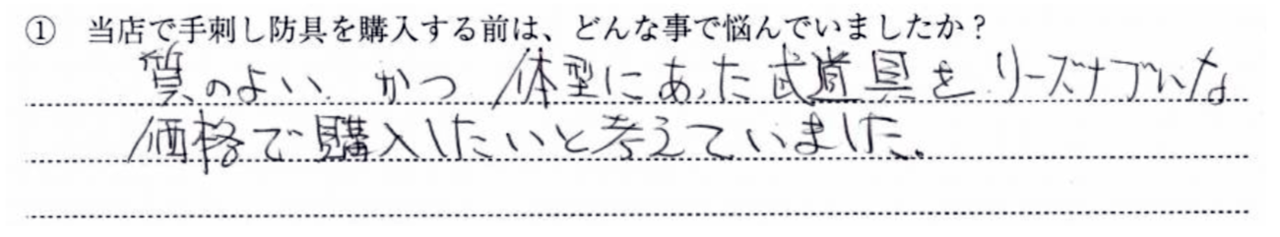 ① 当店で手刺し防具を購入する前は、どんな事で悩んでいましたか？
質のよい、かつ 体型にあった武道具をリーズナブルな
価格で購入したいと考えていました。